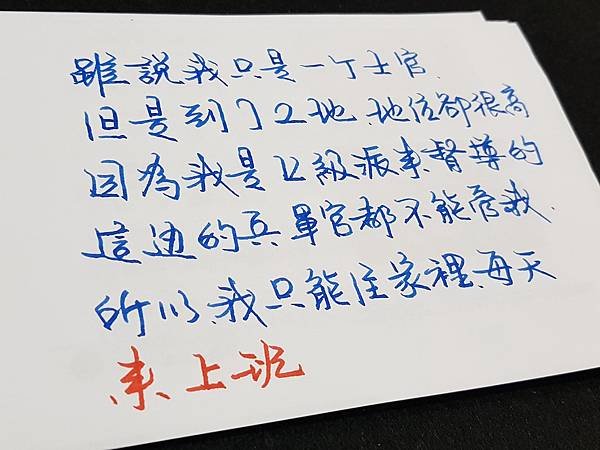 雖說我只是一个士官.
但是到了工地,地位卻很高
因為我是上級派來督導的
這边的兵單官都不能管我.
所以,我只能住家裡,每天
來上班